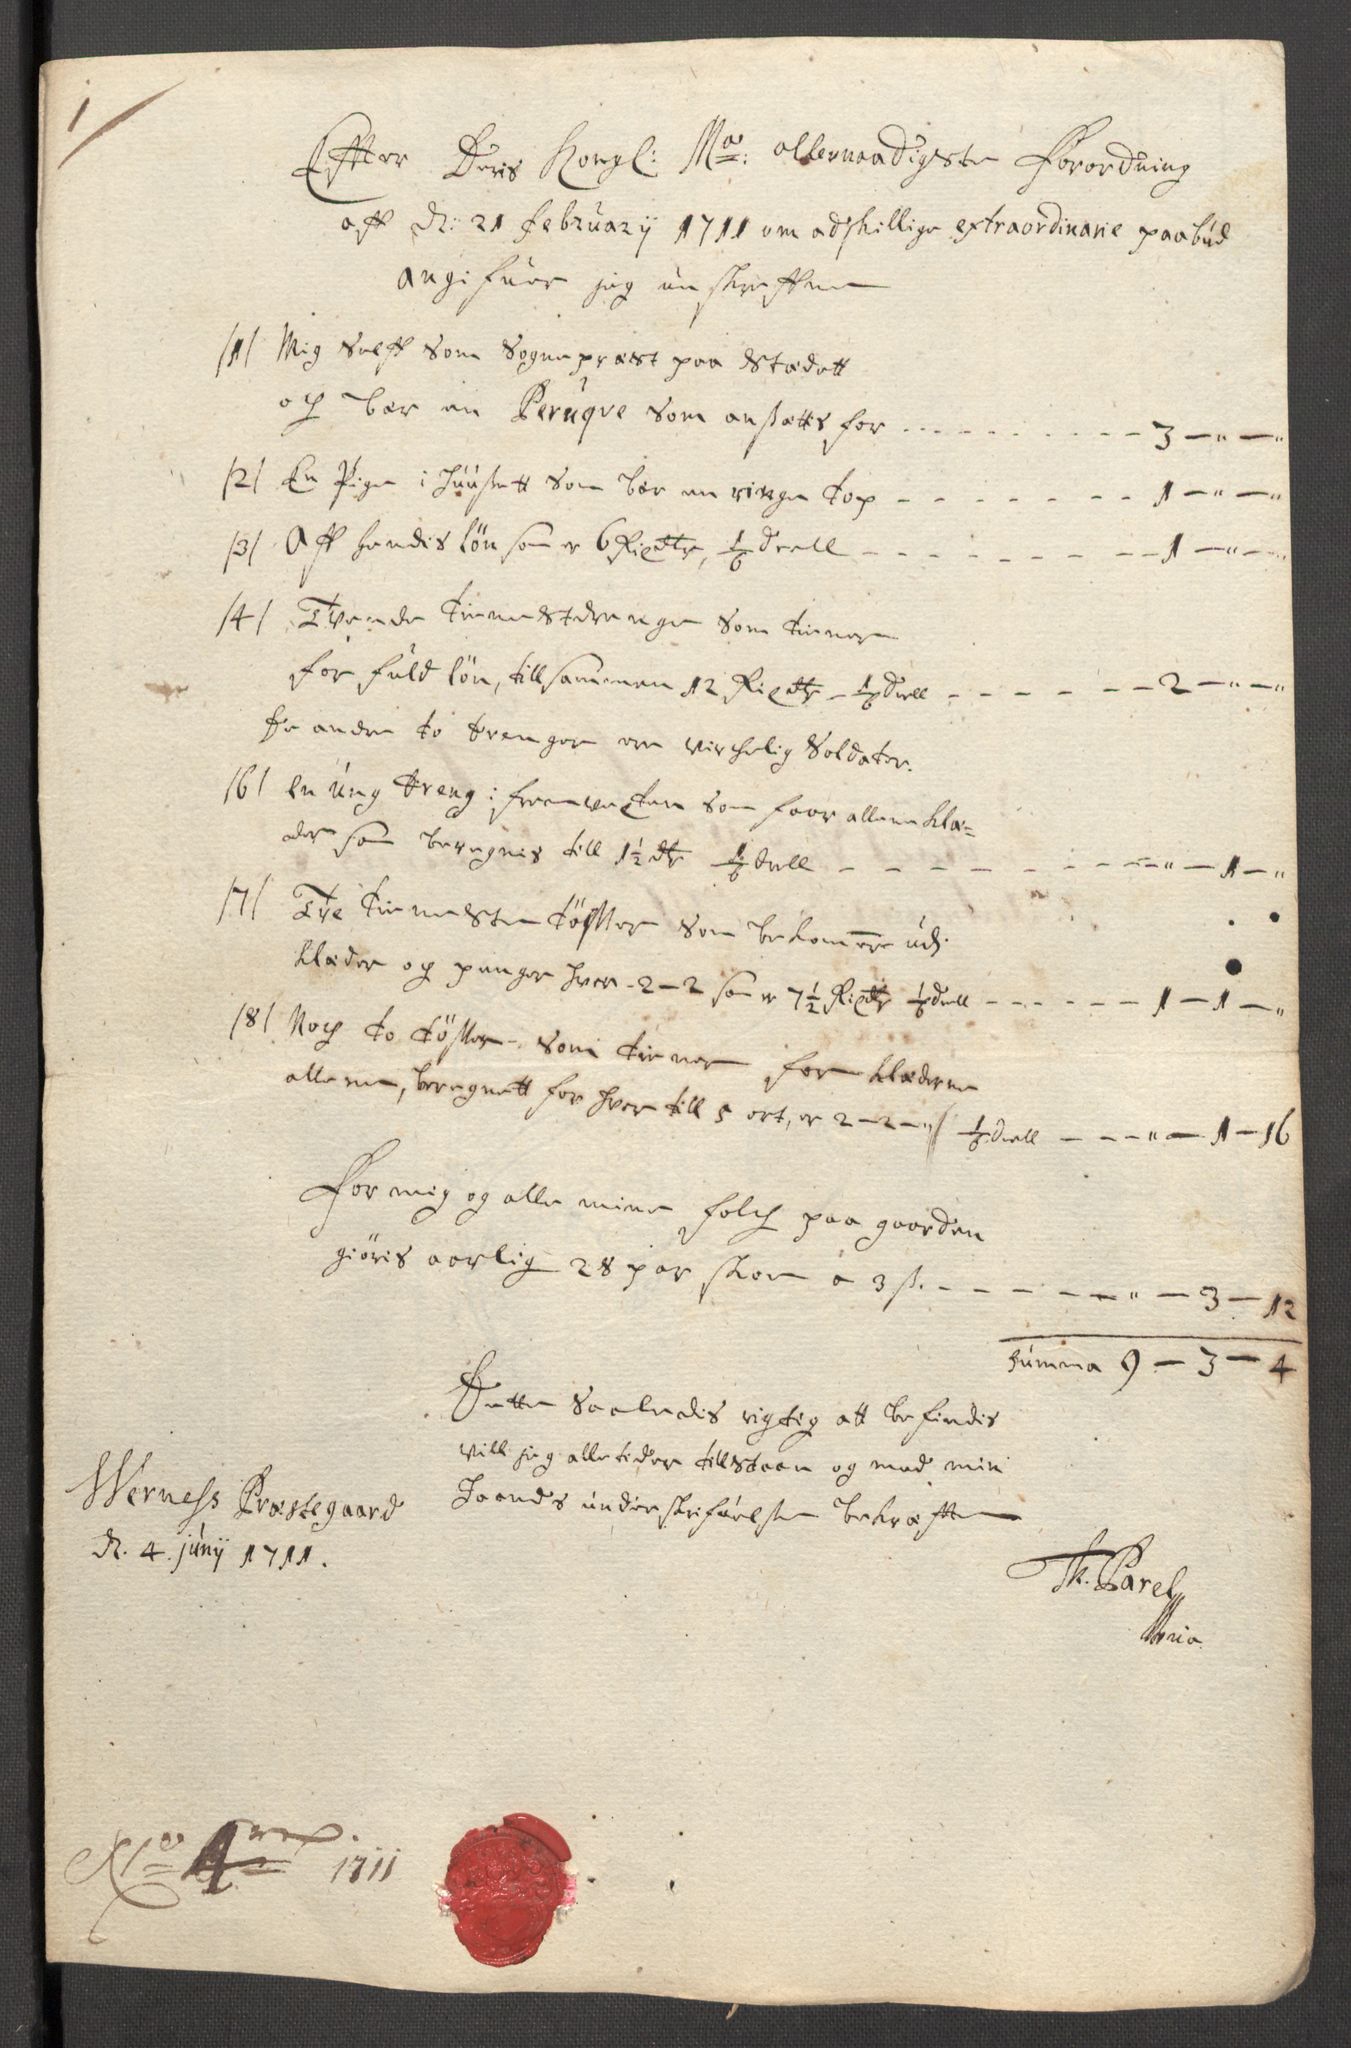 1
Effter Deris Kongl: Ma: allernaadigste Forordning
aff d: 21 februarij 1711 om adskillige extraordinarie paabud
angifuer jeg
/1/ Mig Self som Sognepræst paa Stædett
och bær en Peruqve som ansættes for - - - 3 - " - "
/2/ En Pige i Huusett som bær en ringe top - - - 1 - " - "
/3/ Aff hendis lön som er 6 Rixdlr, 1/6 deell - - - 1 - " - "
/4/ Tvende tienneste drenge som tienner
for fuld lön, tillsammen 12 Rixdlr - 1/6 deell - - - 2 - " - "
de andre to drenger ere virchelig Soldater.
/6/ En ung dreng i fremvexten som faar allene klæ-
der som beregnis till 1 1/2 dlr 1/6 deell - - - " - 1 - "
/7/ Tre tienneste töser som bekommer udj
klæder og penger hver - 2 - 2 som er 7 1/2 Rixdlr 1/6 deell - - - 1 - 1 - "
/8/ Noch to töser som tienner for klæderne
allene, beregnett for hver till 5 ort, er 2 - 2 - " 1/6 deell - - - " - 1 - 16
For mig og alle mine folch paa gaarden
giöris aarlig 28 par skoe a 3 s. - - - " - 3 - 12
Summa 9 - 3 - 4
Dette saaledis rigtig att befindis
vill jeg alle tider tillstaae og med min
Haands underskrifvelse bekræfte
Werness Præstegaard
d. 4. junij 1711.
Th. Parel
mria
No 4 1711